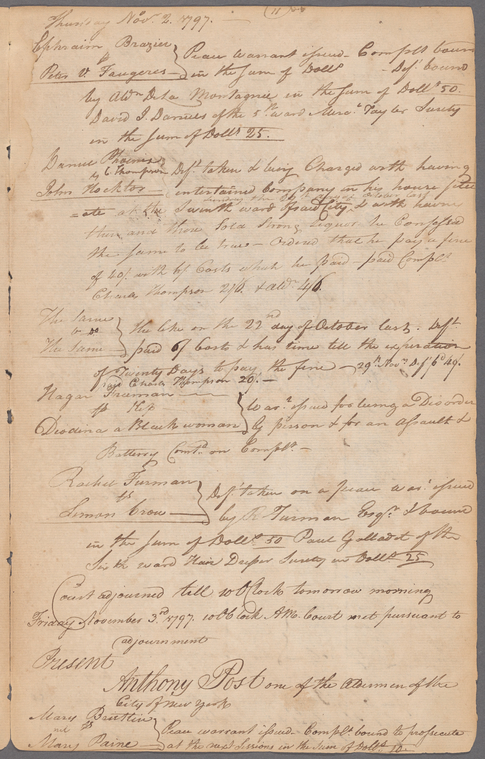 Thursday Nov. 2. 1797.
Ephraim Brazier
vs
Peter V. Faugeres
Peace warrant issued. Complt. bound
in the sum of Dolls. Deft. bound
by Aldn. De La Montagnee in the sum of Dolls. 50.
David I. Daniels of the 5th ward Taylor Surety
in the sum of Dolls. 25.
Daniel Phoenix
& C Thompson
John Hockton
Deft. taken & being Charged with having
entertained Company in his house situ
=ate at the Seventh ward of said City & with having
then and there sold Strong liquor he Confessed
the same to be true - Ordered that he pay a fine
of with 6/ Costs which he paid - paid Complt.
Charles Thompson 2/6. & Aldn. 4/6
The same
vs
The same
the like on the 22nd day of October last. Deft.
paid 6/ Costs & has time till the expiration
of Twenty Days to pay the fine - 29th Novr. Deft. pd. 49/.
pd. Charls Thompson 20/. -
Hagar Truman
vs
Diodina a Black woman
Warrt. issued for being a Disorder
ly person & for an Assault &
Battery on Complt. -
Rachel Furman
vs
Simon Crow
Deft. taken on a Peace Warrt. issued
by Furman Esqr. & bound
in the sum of Dolls. 50 Paul of the
Sixth ward Hair Dresser Surety in Dolls. 25
Court adjourned till 10 O'Clock tomorrow morning
Friday November 3rd. 1797. 10 O'Clock A.M. Court met pursuant to
adjournment
Present
Anthony Post one of the Aldermen of the
City of New York
Mary
vs
Mary Paine
Peace warrant issued. Complt. bound to prosecute
at the next Sessions in the sum of Dolls. 10